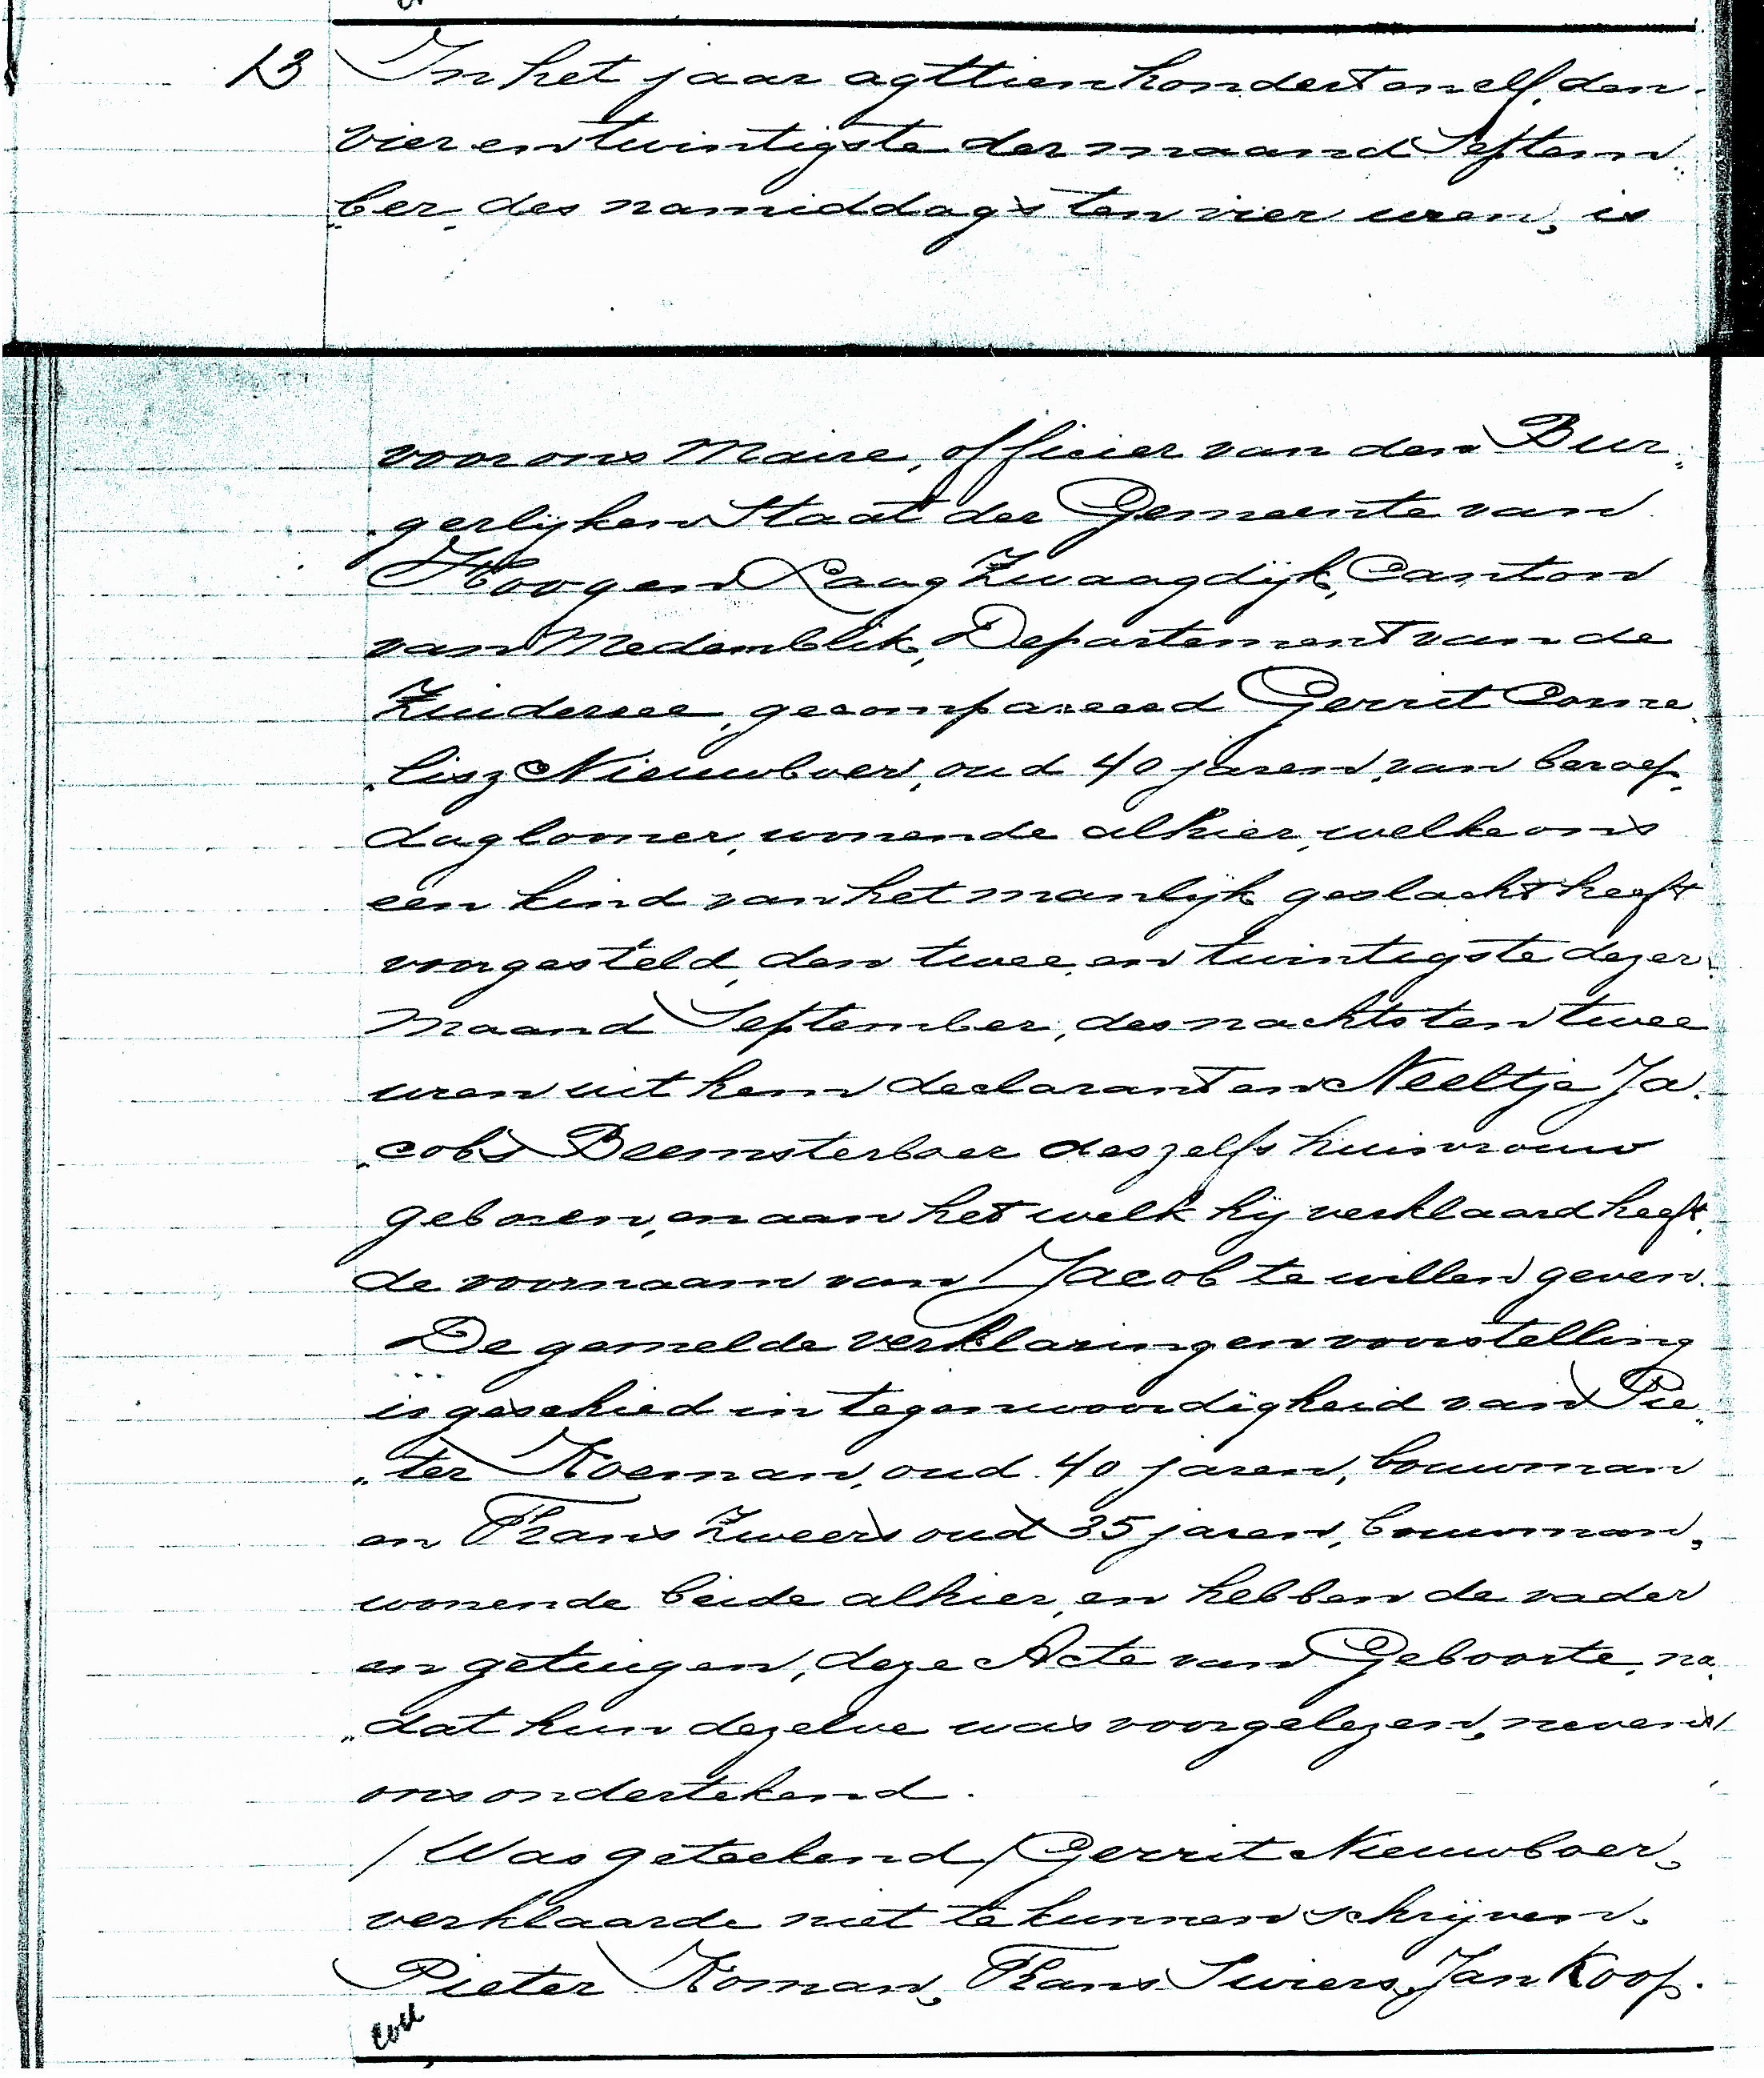 13 In het jaar agttienhondert en elf, den
vier en twintigste der maand Septem„
„ber, des namiddags ten vier uren, is
voor ons Maire, officier van den Bur„
„gerlyken Staat der Gemeente van
Hoog en Laag Zwaagdijk, Canton
van Medemblik, Departement van de
Zuiderzee, gecompareerd Gerrit Corne„
„lisz Nieuwboer, oud 40 jaren, van beroep,
dagloner, wonende alhier, welke ons
een kind van het manlyk geslacht heeft
voorgesteld, den twee en twintigste dezer
Maand September, des nachts ten twee
uren uit hem declarant en Neeltje Ja„
„cobs Beemsterboer deszelfs huisvrouw
geboren, en aan het welk hij verklaard heeft,
de voornaam van Jacob te willen geven.
De gemelde verklaring en voorstelling
is geschied in tegenwoordigheid van Pie„
„ter Koeman, oud 40 jaren, bouwman
en Frans Zweers oud 35 jaren, bouwman,
wonende beide alhier, en hebben de vader
en getuigen, deze Acte van Geboorte, na„
„dat hun dezelve was voorgelezen, nevens
ons ondertekend.
/Was geteekend/ Gerrit Nieuwboer,
verklaarde niet te kunnen schrijven.
Pieter Koman, Frans Swiers, Jan Koop.
coll